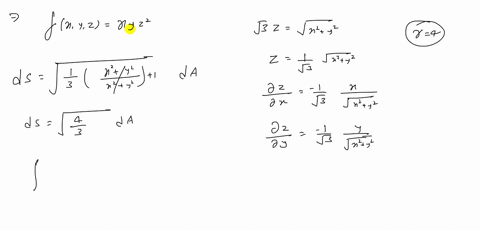 ⇒ f(x, y, z) = xyz²
dS = √(1/3 (x²+y² / x²+y²) + 1) dA
dS = √(4/3) dA
∫
√3 z = √(x²+y²)
z = 1/√3 √(x²+y²)
∂z/∂x = -1/√3 x/√(x²+y²)
∂z/∂y = -1/√3 y/√(x²+y²)
r=4